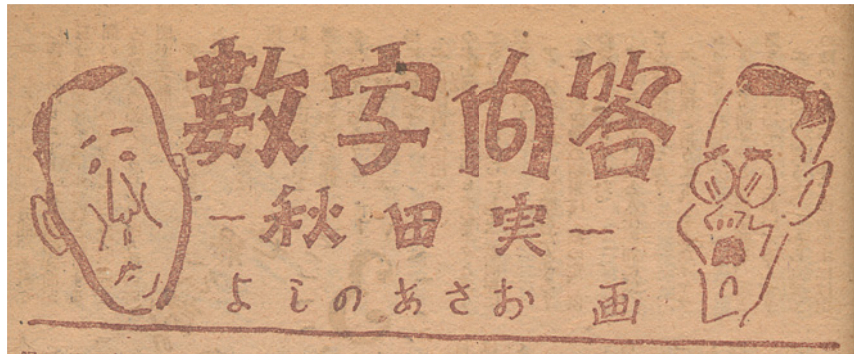 數字問答
—秋田実—
よしのあさお 画